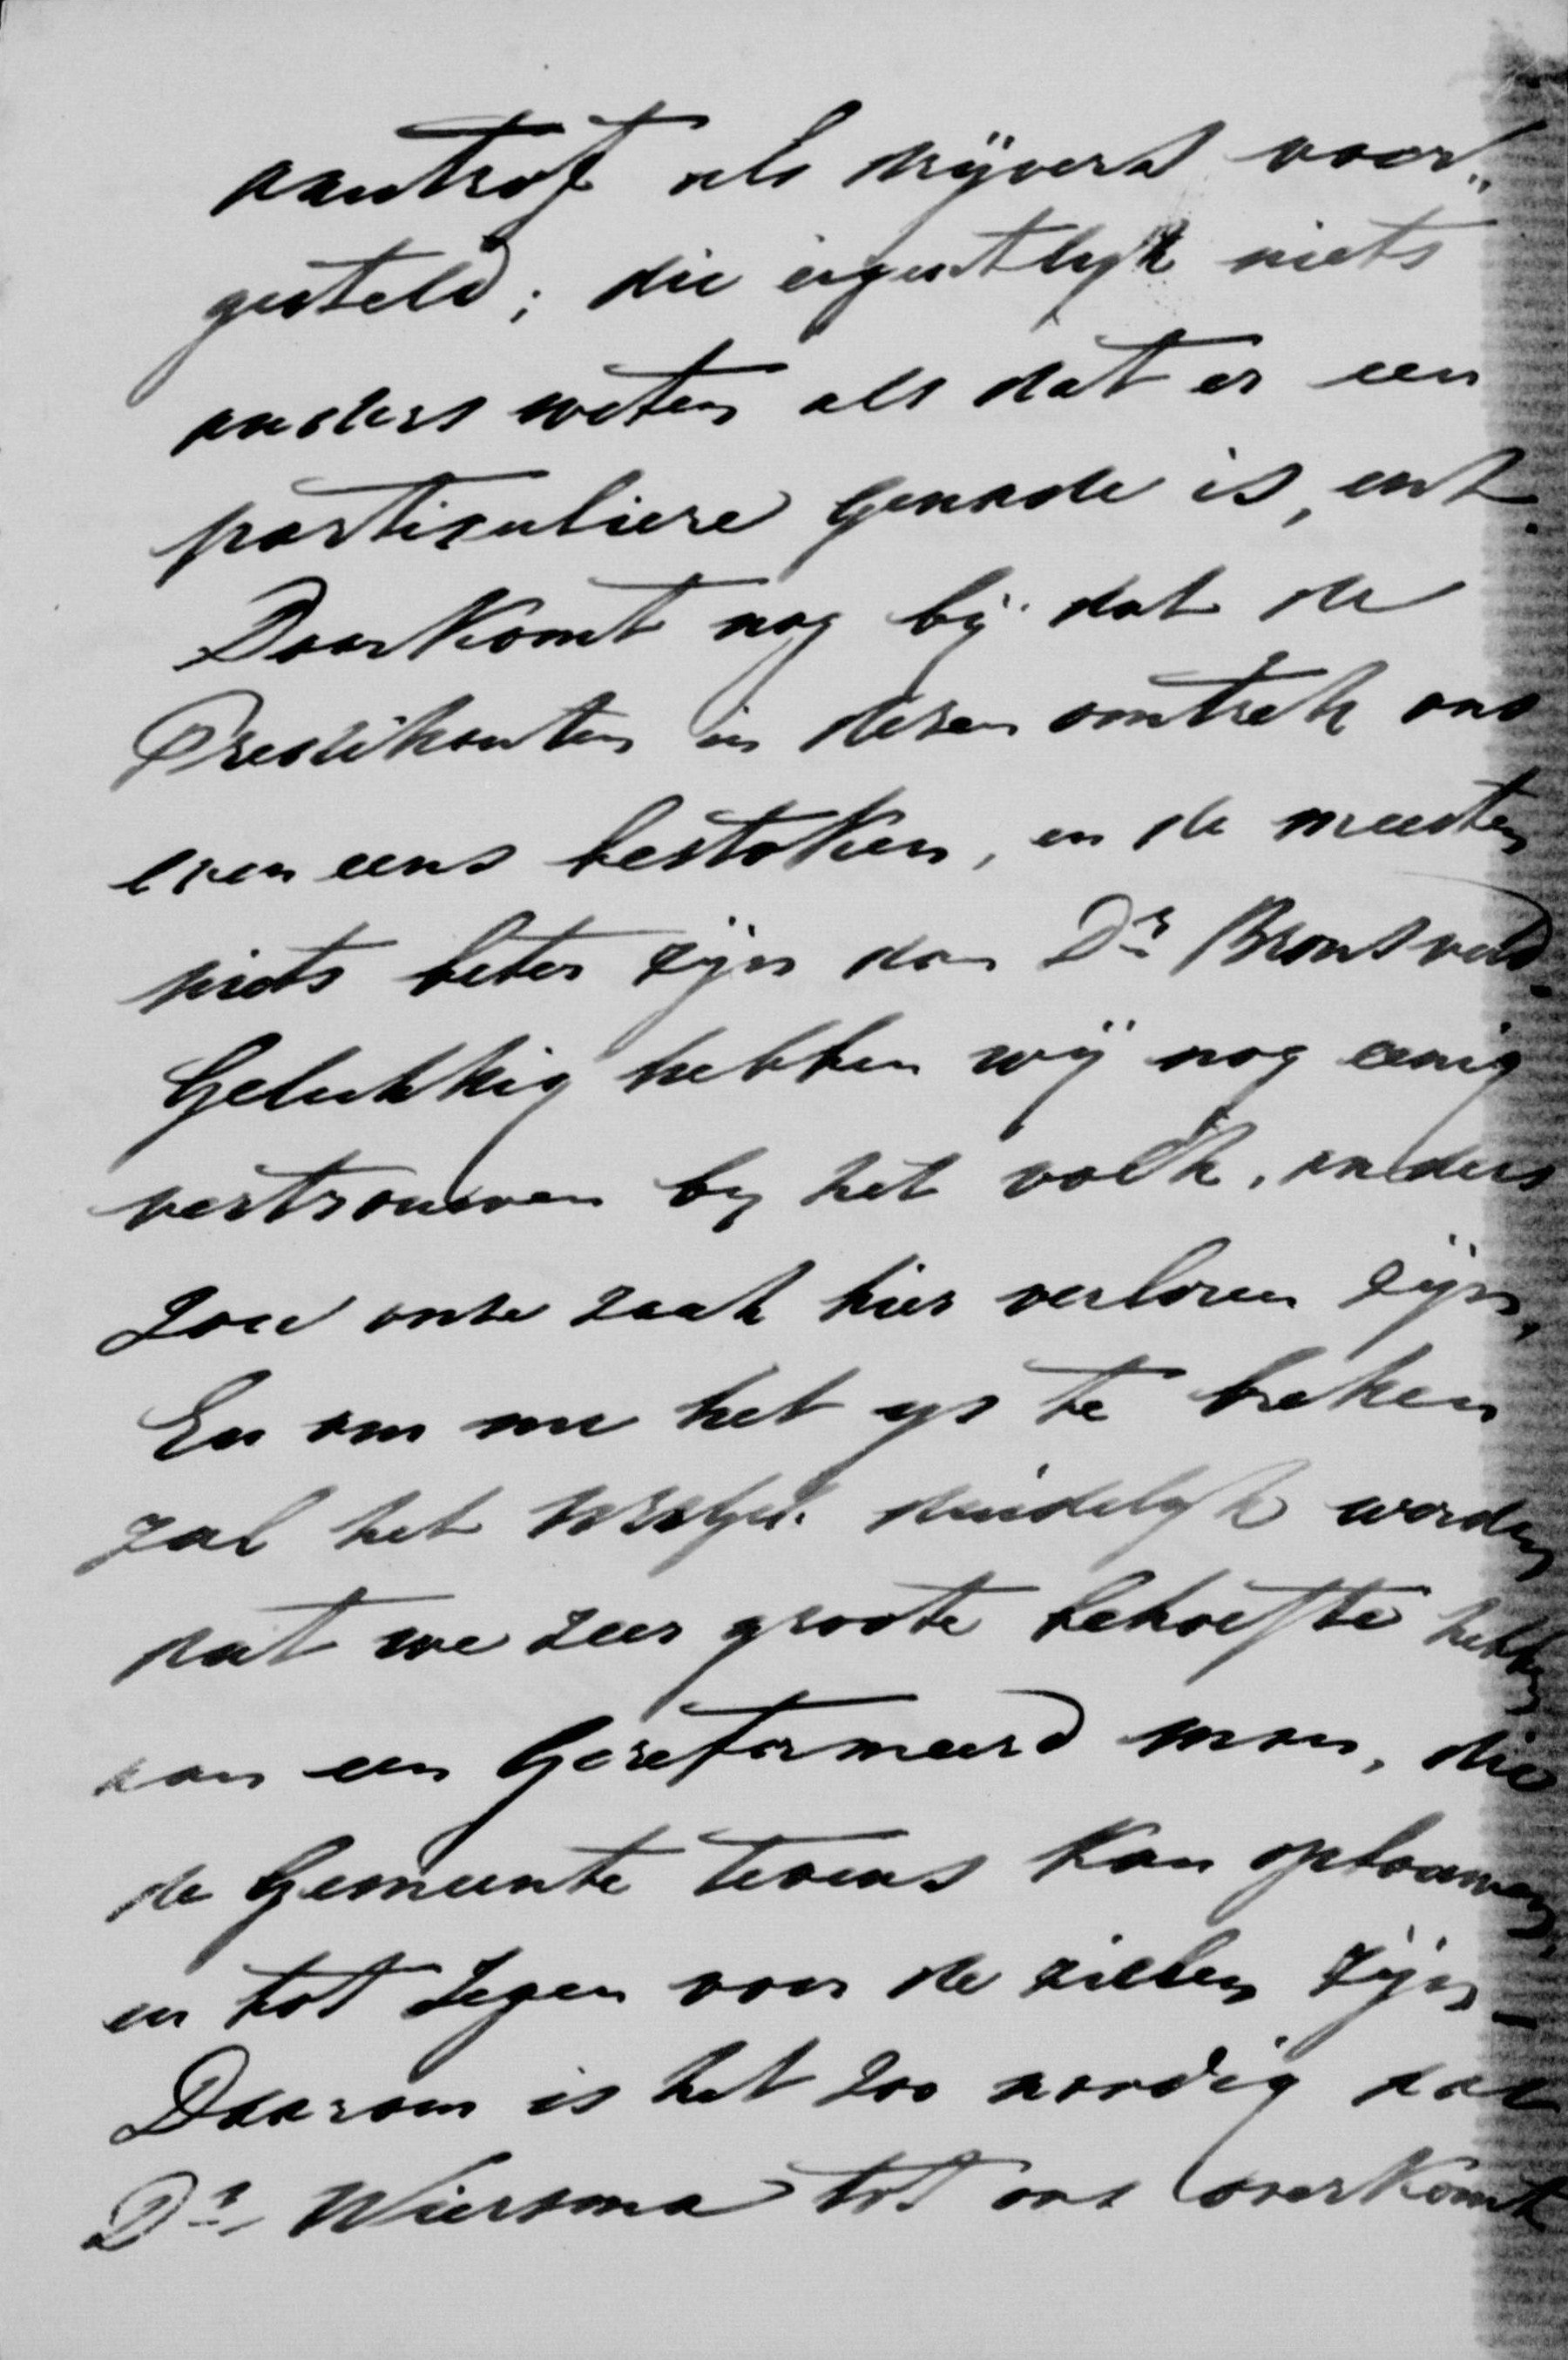 aantrof als drijvers voor„
gesteld; die eigentlyk niets
anders weten als dat er een
particuliere Genade is, enz.
Daar komt nog bij dat de
Predikanten in dezen omtrek ons
even eens bestoken, en de meesten
niets beter zijn dan Dr Bronsveld.
Gelukkig hebben wij nog eenig
vertrouwen by het volk, anders
zou onze zaak hier verloren zijn,
En om nu het ys te breken
zal het duidelyk worden
dat we zeer groote behoefte hebben
aan een Gereformeerd man, die
de Gemeente tevens kan opbouwen,
en tot zegen voor de zielen zijn –
Daarom is het zoo noodig dat
Dr Wiersma tot ons overkomt